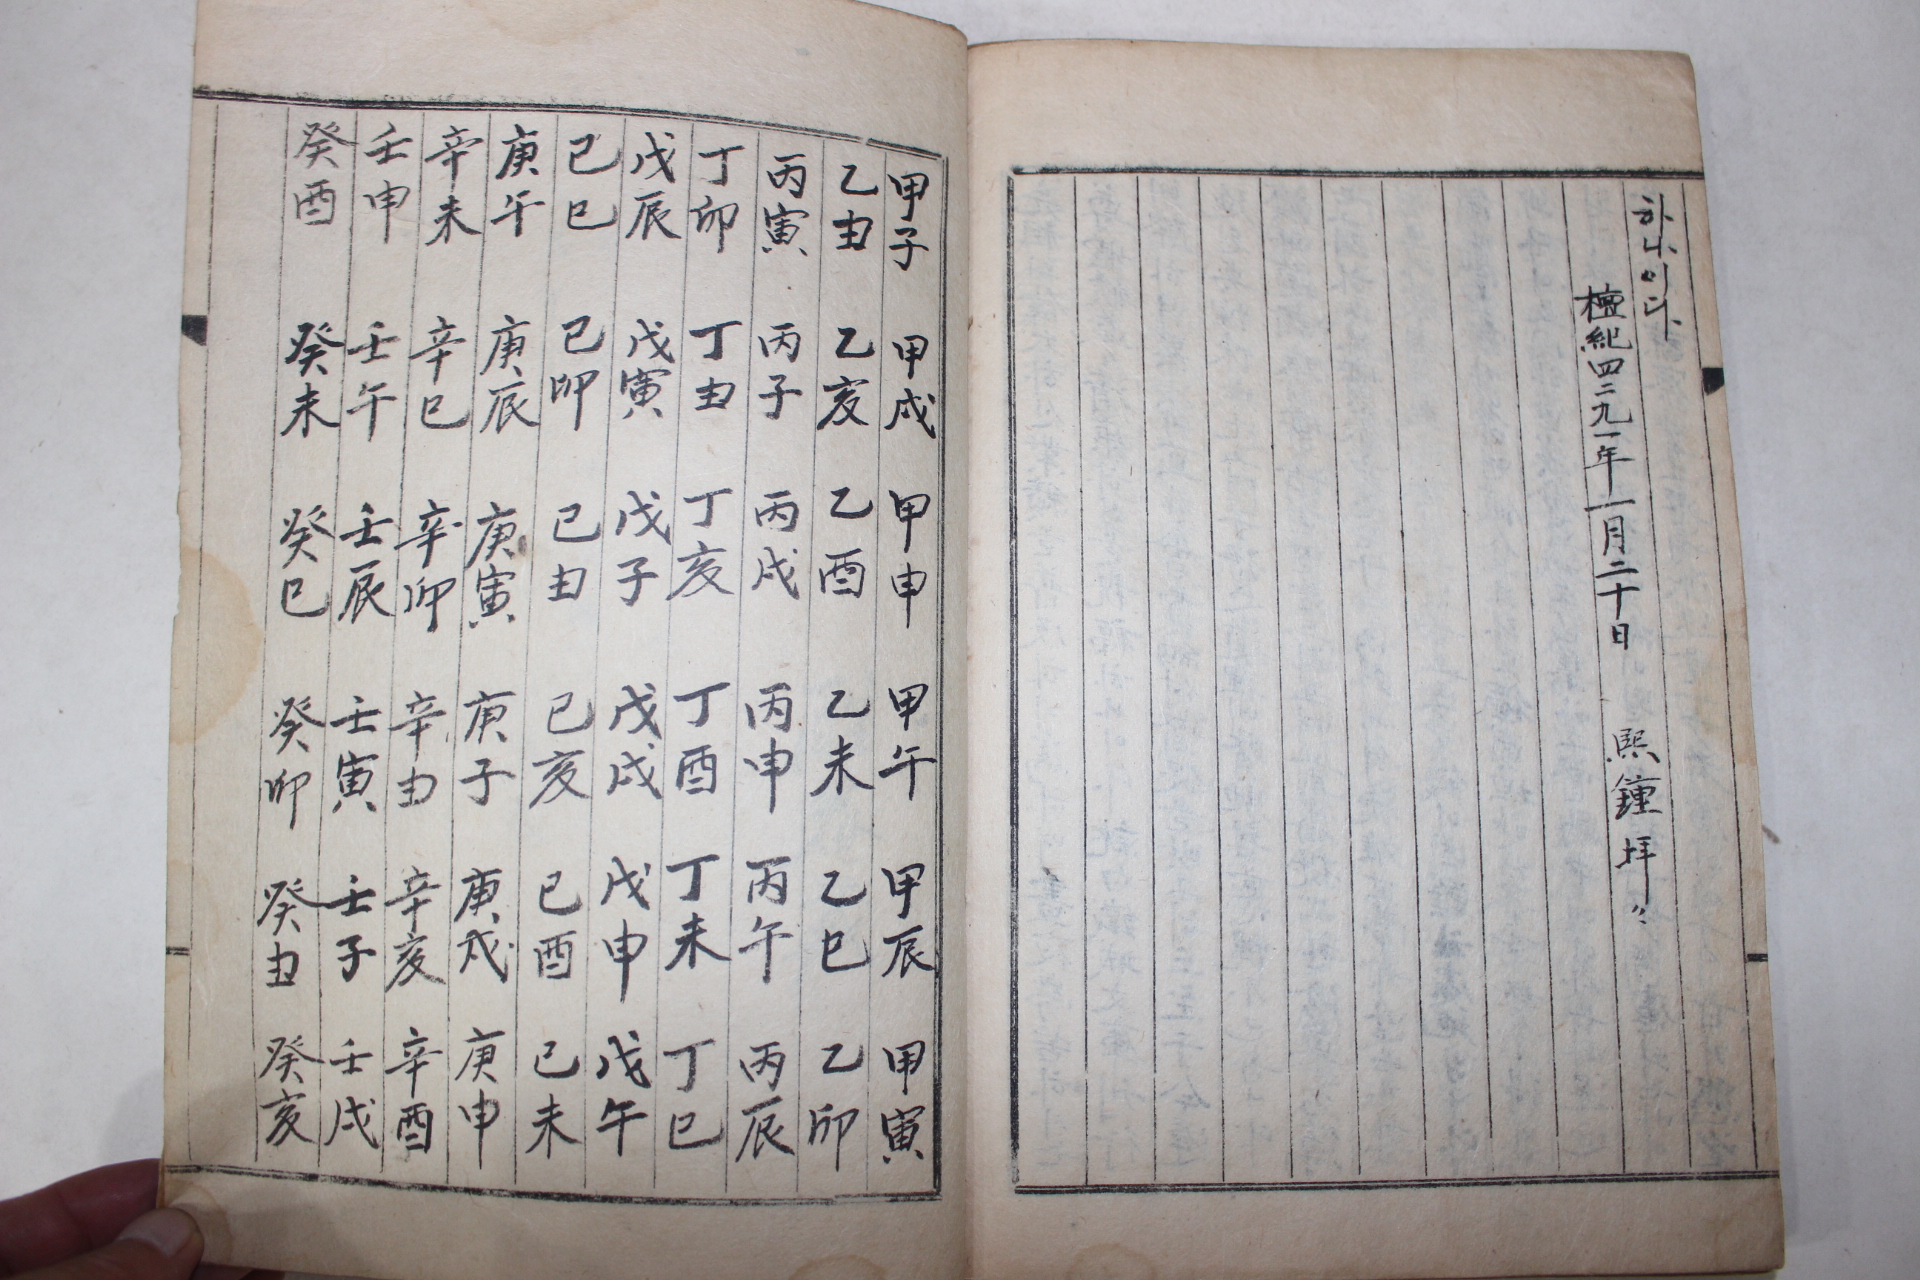 하나이다
檀紀四二九一年一月二十日 熙鍾拜〃
甲子 甲戌 甲申 甲午 甲辰 甲寅
乙丑 乙亥 乙酉 乙未 乙巳 乙卯
丙寅 丙子 丙戌 丙申 丙午 丙辰
丁卯 丁丑 丁亥 丁酉 丁未 丁巳
戊辰 戊寅 戊子 戊戌 戊申 戊午
己巳 己卯 己丑 己亥 己酉 己未
庚午 庚辰 庚寅 庚子 庚戌 庚申
辛未 辛巳 辛卯 辛丑 辛亥 辛酉
壬申 壬午 壬辰 壬寅 壬子 壬戌
癸酉 癸未 癸巳 癸卯 癸丑 癸亥